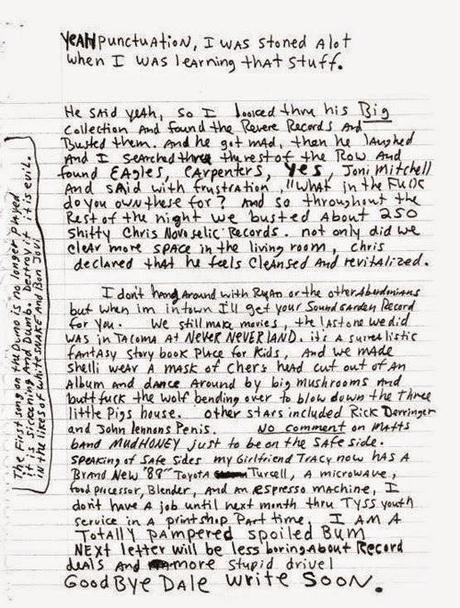 YEAH PUNCTUATION, I WAS STONED Alot
when I was learning that Stuff.
He said yeah, so I looked thru his Big
Collection And found the Revere Records And
Busted them. And he got mAD, then he laughed
And I searched the rest of the Row And
found EAgles, CArpenters, Yes, Joni Mitchell
And sAid with frustration, "What in the Fuck
do you own these for? And so throughout the
Rest of the night we busted About 250
shitty Chris Novoselic Records. not only did we
clear more SPACE in the living room, Chris
declared that he feels Cleansed And revitalized.
I don't hang Around with Ryan or the other Aberdonians
but when im in town I'll get your Soundgarden Record
for you. We still make movies, the last one we did
was in Tacoma at NEVER NEVERLAND. it's a surrealistic
fantasy story book Place for Kids, and we made
shelli wear A mask of Cher's head cut out of An
Album and dance Around by big mushrooms And
buttfuck the wolf bending over to blow down the three
little Pigs house. other stars included Rick Derringer
and John lennons Penis. No comment on Matts
band MUDHONEY just to be on the Safe side.
SPEAKING of Safe Sides my Girlfriend TRACY now has A
BRAND New '89" Toyota Turcell, A microwave,
food processor, Blender, And an ESPRESSO machine, I
don't have A job until next month thru TYSS youth
service in a printshop Part time, I AM A
TOTAlly pampered spoiled Bum
NEXT letter will be less boring About Record
deals And more stupid drivel
GOOD BYE DALE WRITE SOON.
The first song on the Demo is no longer played
it is sickening And Dumb. Destroy it it is evil.
in the likes of WHITESNAKE And Bon Jovi